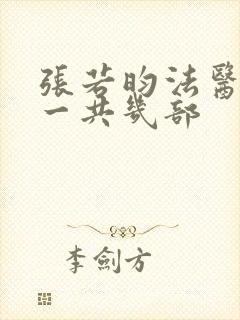 張若昀法醫
一共幾部
李劍方